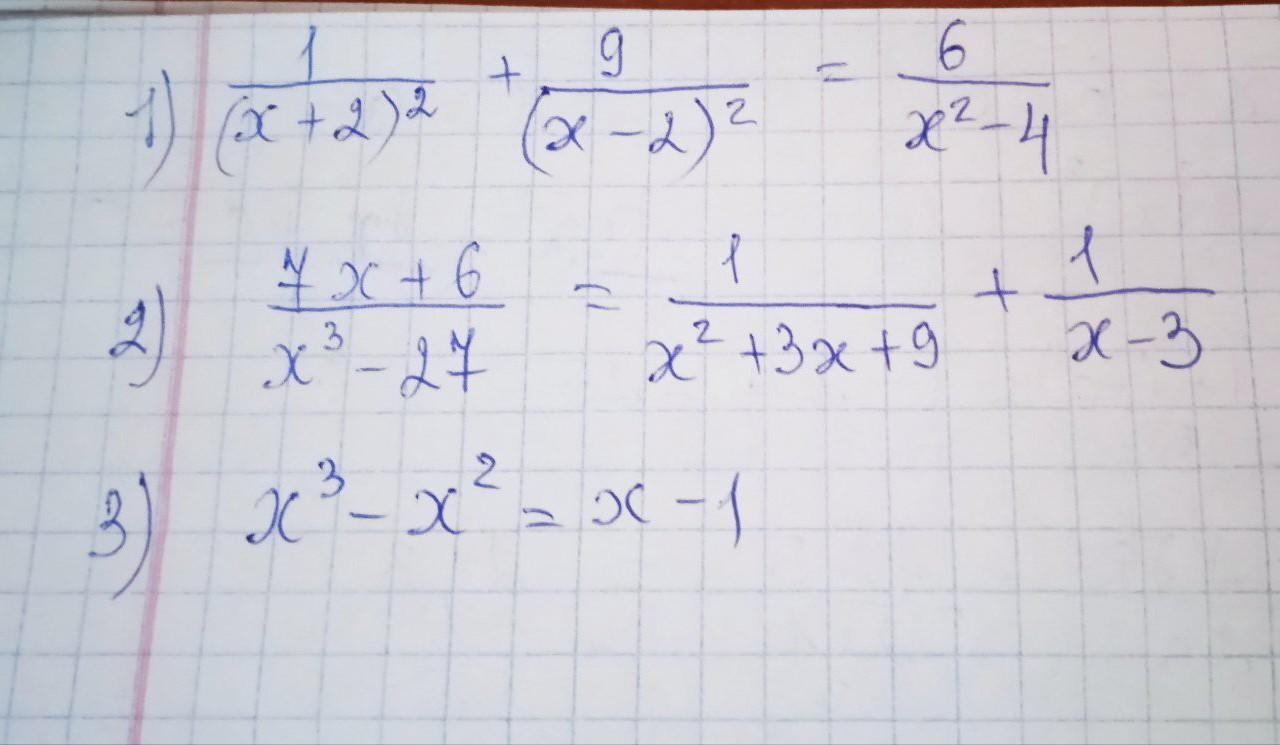 1) 1/(x+2)² + 9/(x-2)² = 6/(x²-4)
2) (7x+6)/(x³-27) = 1/(x²+3x+9) + 1/(x-3)
3) x³ - x² = x - 1